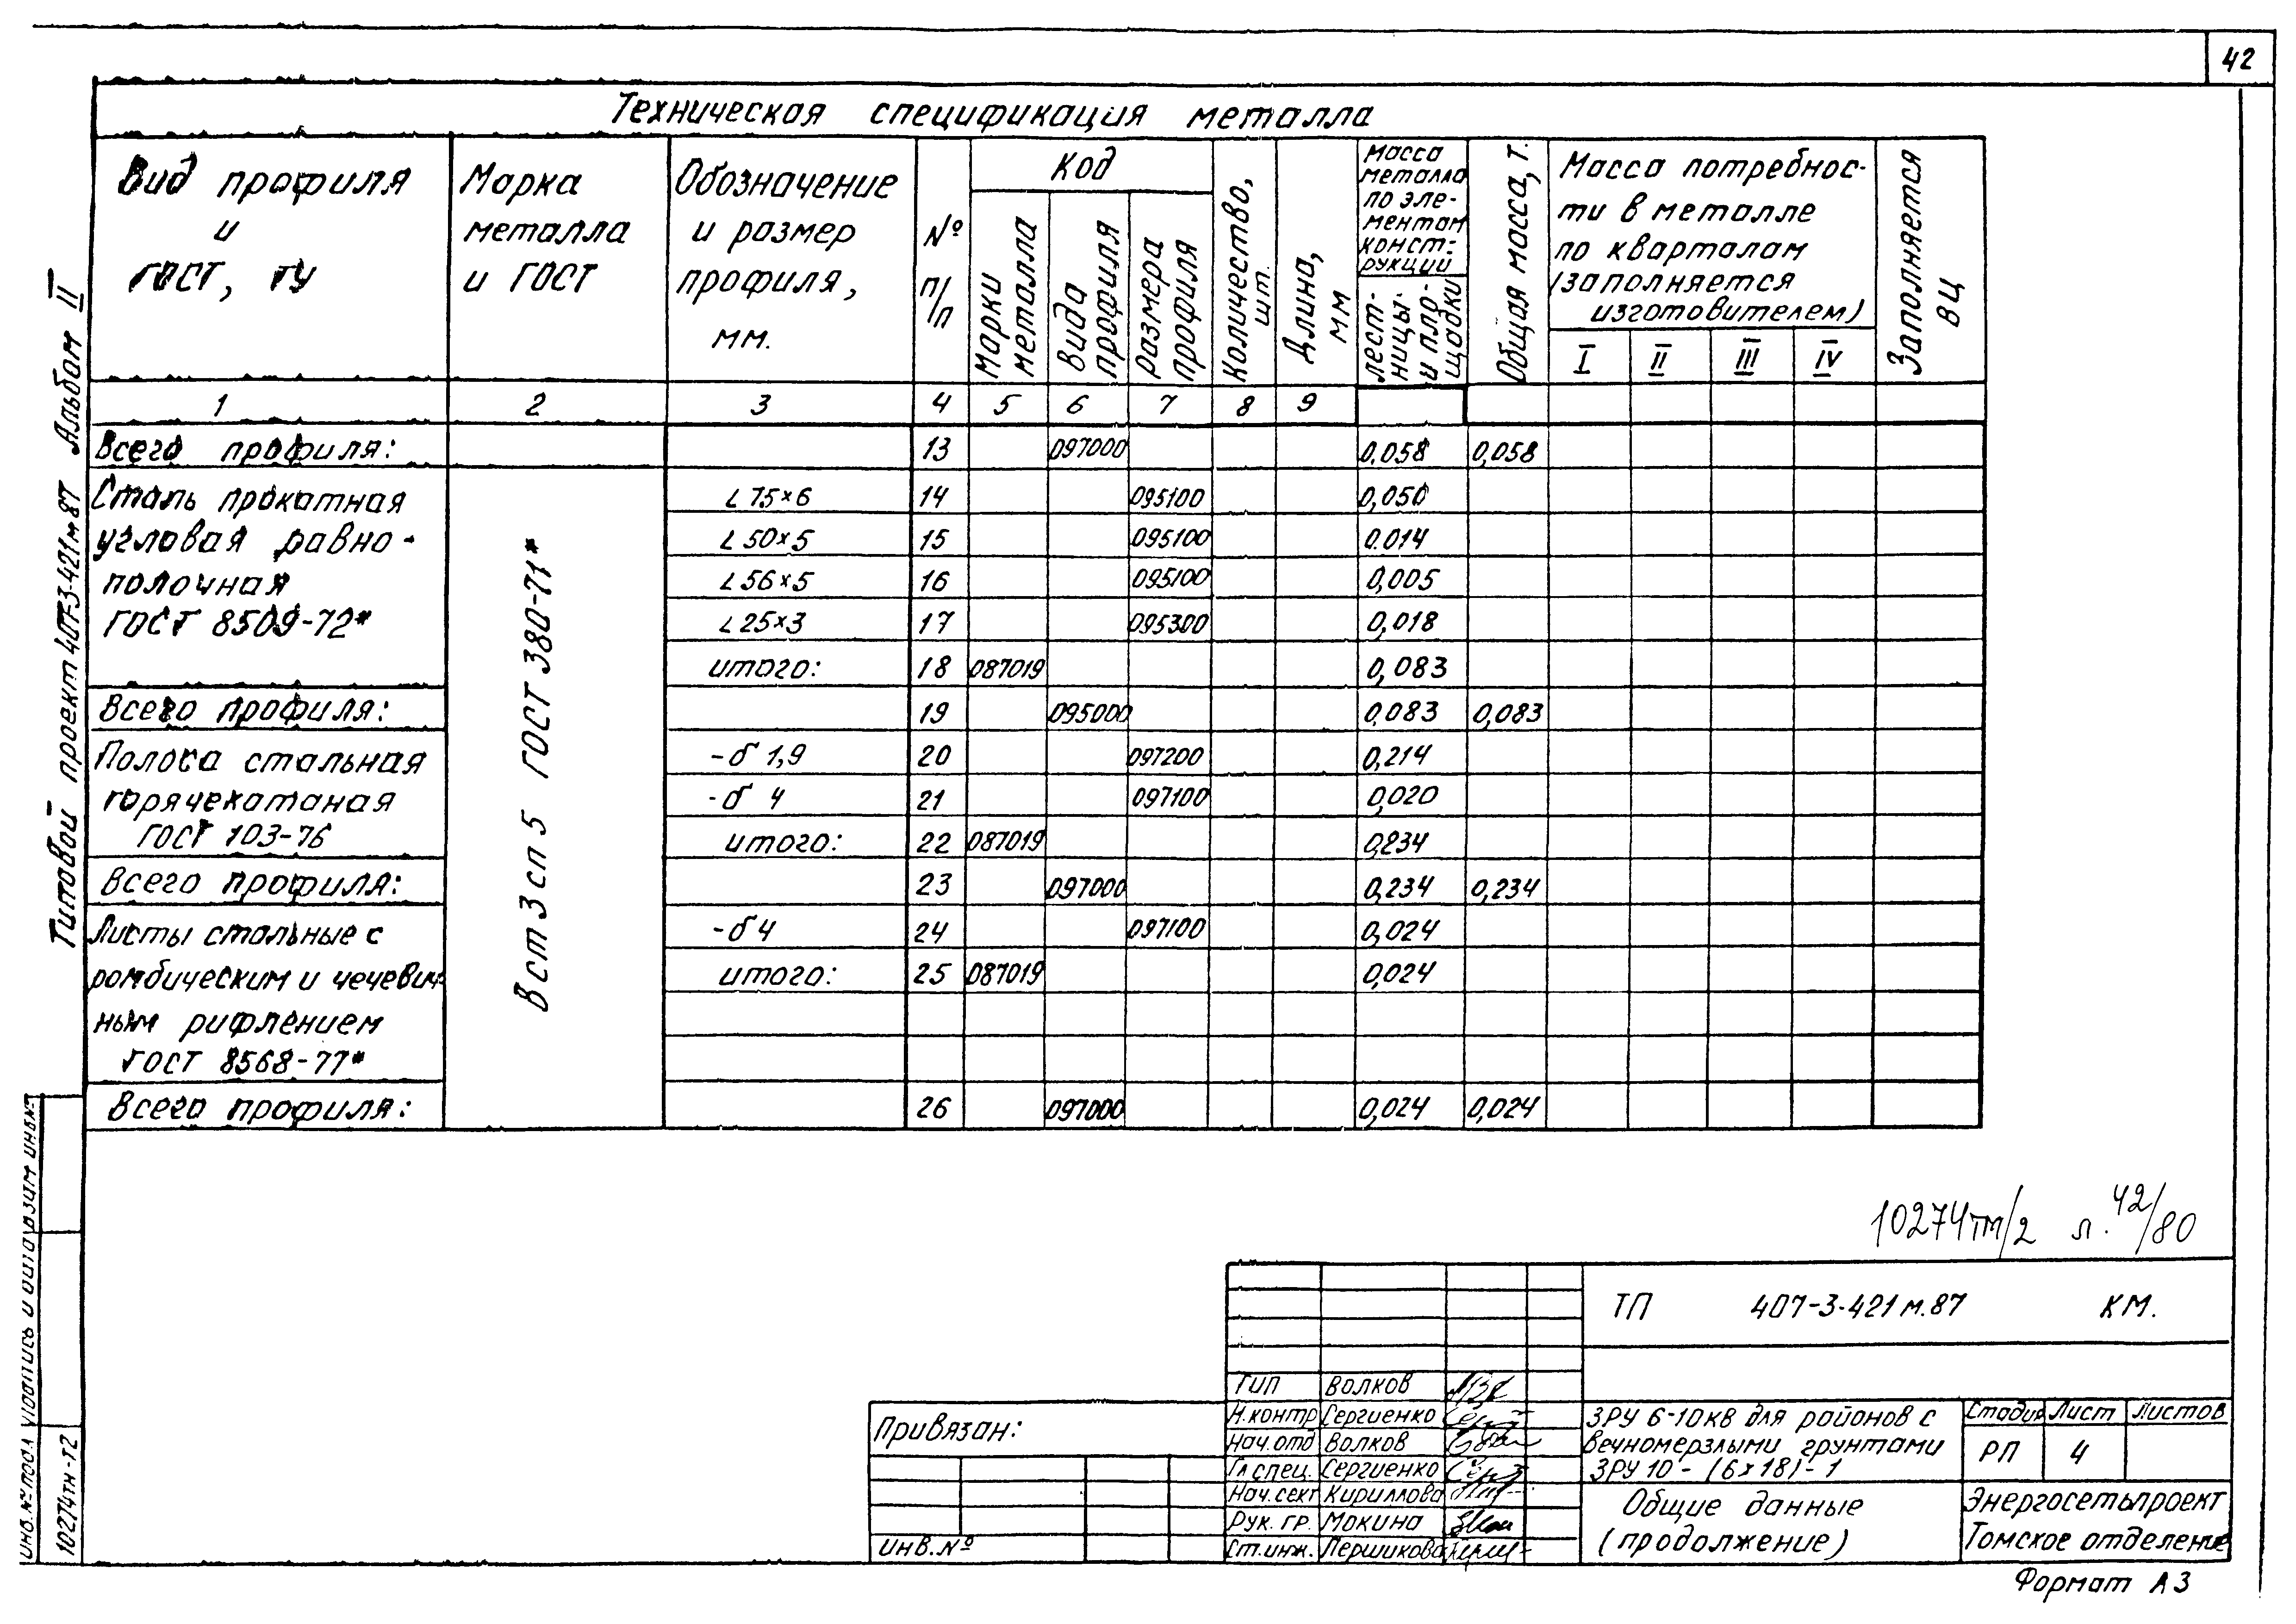 42
Техническая спецификация металла
Вид профиля и ГОСТ, ТУ
Марка металла и ГОСТ
Обозначение и размер профиля, мм.
№ п/п
Код
Марки металла
Вида профиля
Размера профиля
Количество, шт.
Длина, мм
Масса металла по элементам конструкций
Лестницы и площадки
Общая масса, т.
Масса потребности в металле по кварталам (заполняется изготовителем)
I II III IV
Заполняется ВЦ
1 2 3 4 5 6 7 8 9
Всего профиля: 13 097000 0,058 0,058
Сталь прокатная L 75×6 14 095100 0,050
угловая равно- L 50×5 15 095100 0.014
полочная L 56×5 16 095100 0,005
ГОСТ 8509-72* L 25×3 17 095300 0,018
итого: 18 087019 0,083
Всего профиля: 19 095000 0,083 0,083
Полоса стальная -б 1,9 20 097200 0,214
горячекатаная -б 4 21 097100 0,020
ГОСТ 103-76 итого: 22 087019 0,234
Всего профиля: 23 097000 0,234 0,234
Листы стальные с -б 4 24 097100 0,024
ромбическим и чечевич- итого: 25 087019 0,024
ным рифлением
ГОСТ 8568-77*
Всего профиля: 26 097000 0,024 0,024
В ст 3 сп 5 ГОСТ 380-71*
Типовой проект 407-3-421м.87 Альбом II
Инв.№ подл. Подпись и дата Взам инв.№
10274тм-т2
10274тм/2 л. 42/80
ТП 407-3-421м.87 КМ.
Привязан:
Инв.№
ГИП Волков
Н.контр Сергиенко
Нач.отд Волков
Гл спец. Сергиенко
Нач.сект Кириллова
Рук. гр. Мокина
Ст.инж. Першикова
ЗРУ 6-10кв для районов с
вечномерзлыми грунтами
ЗРУ 10-(6×18)-1
Стадия Лист Листов
РП 4
Общие данные
(продолжение)
Энергосетьпроект
Томское отделение
Формат А3